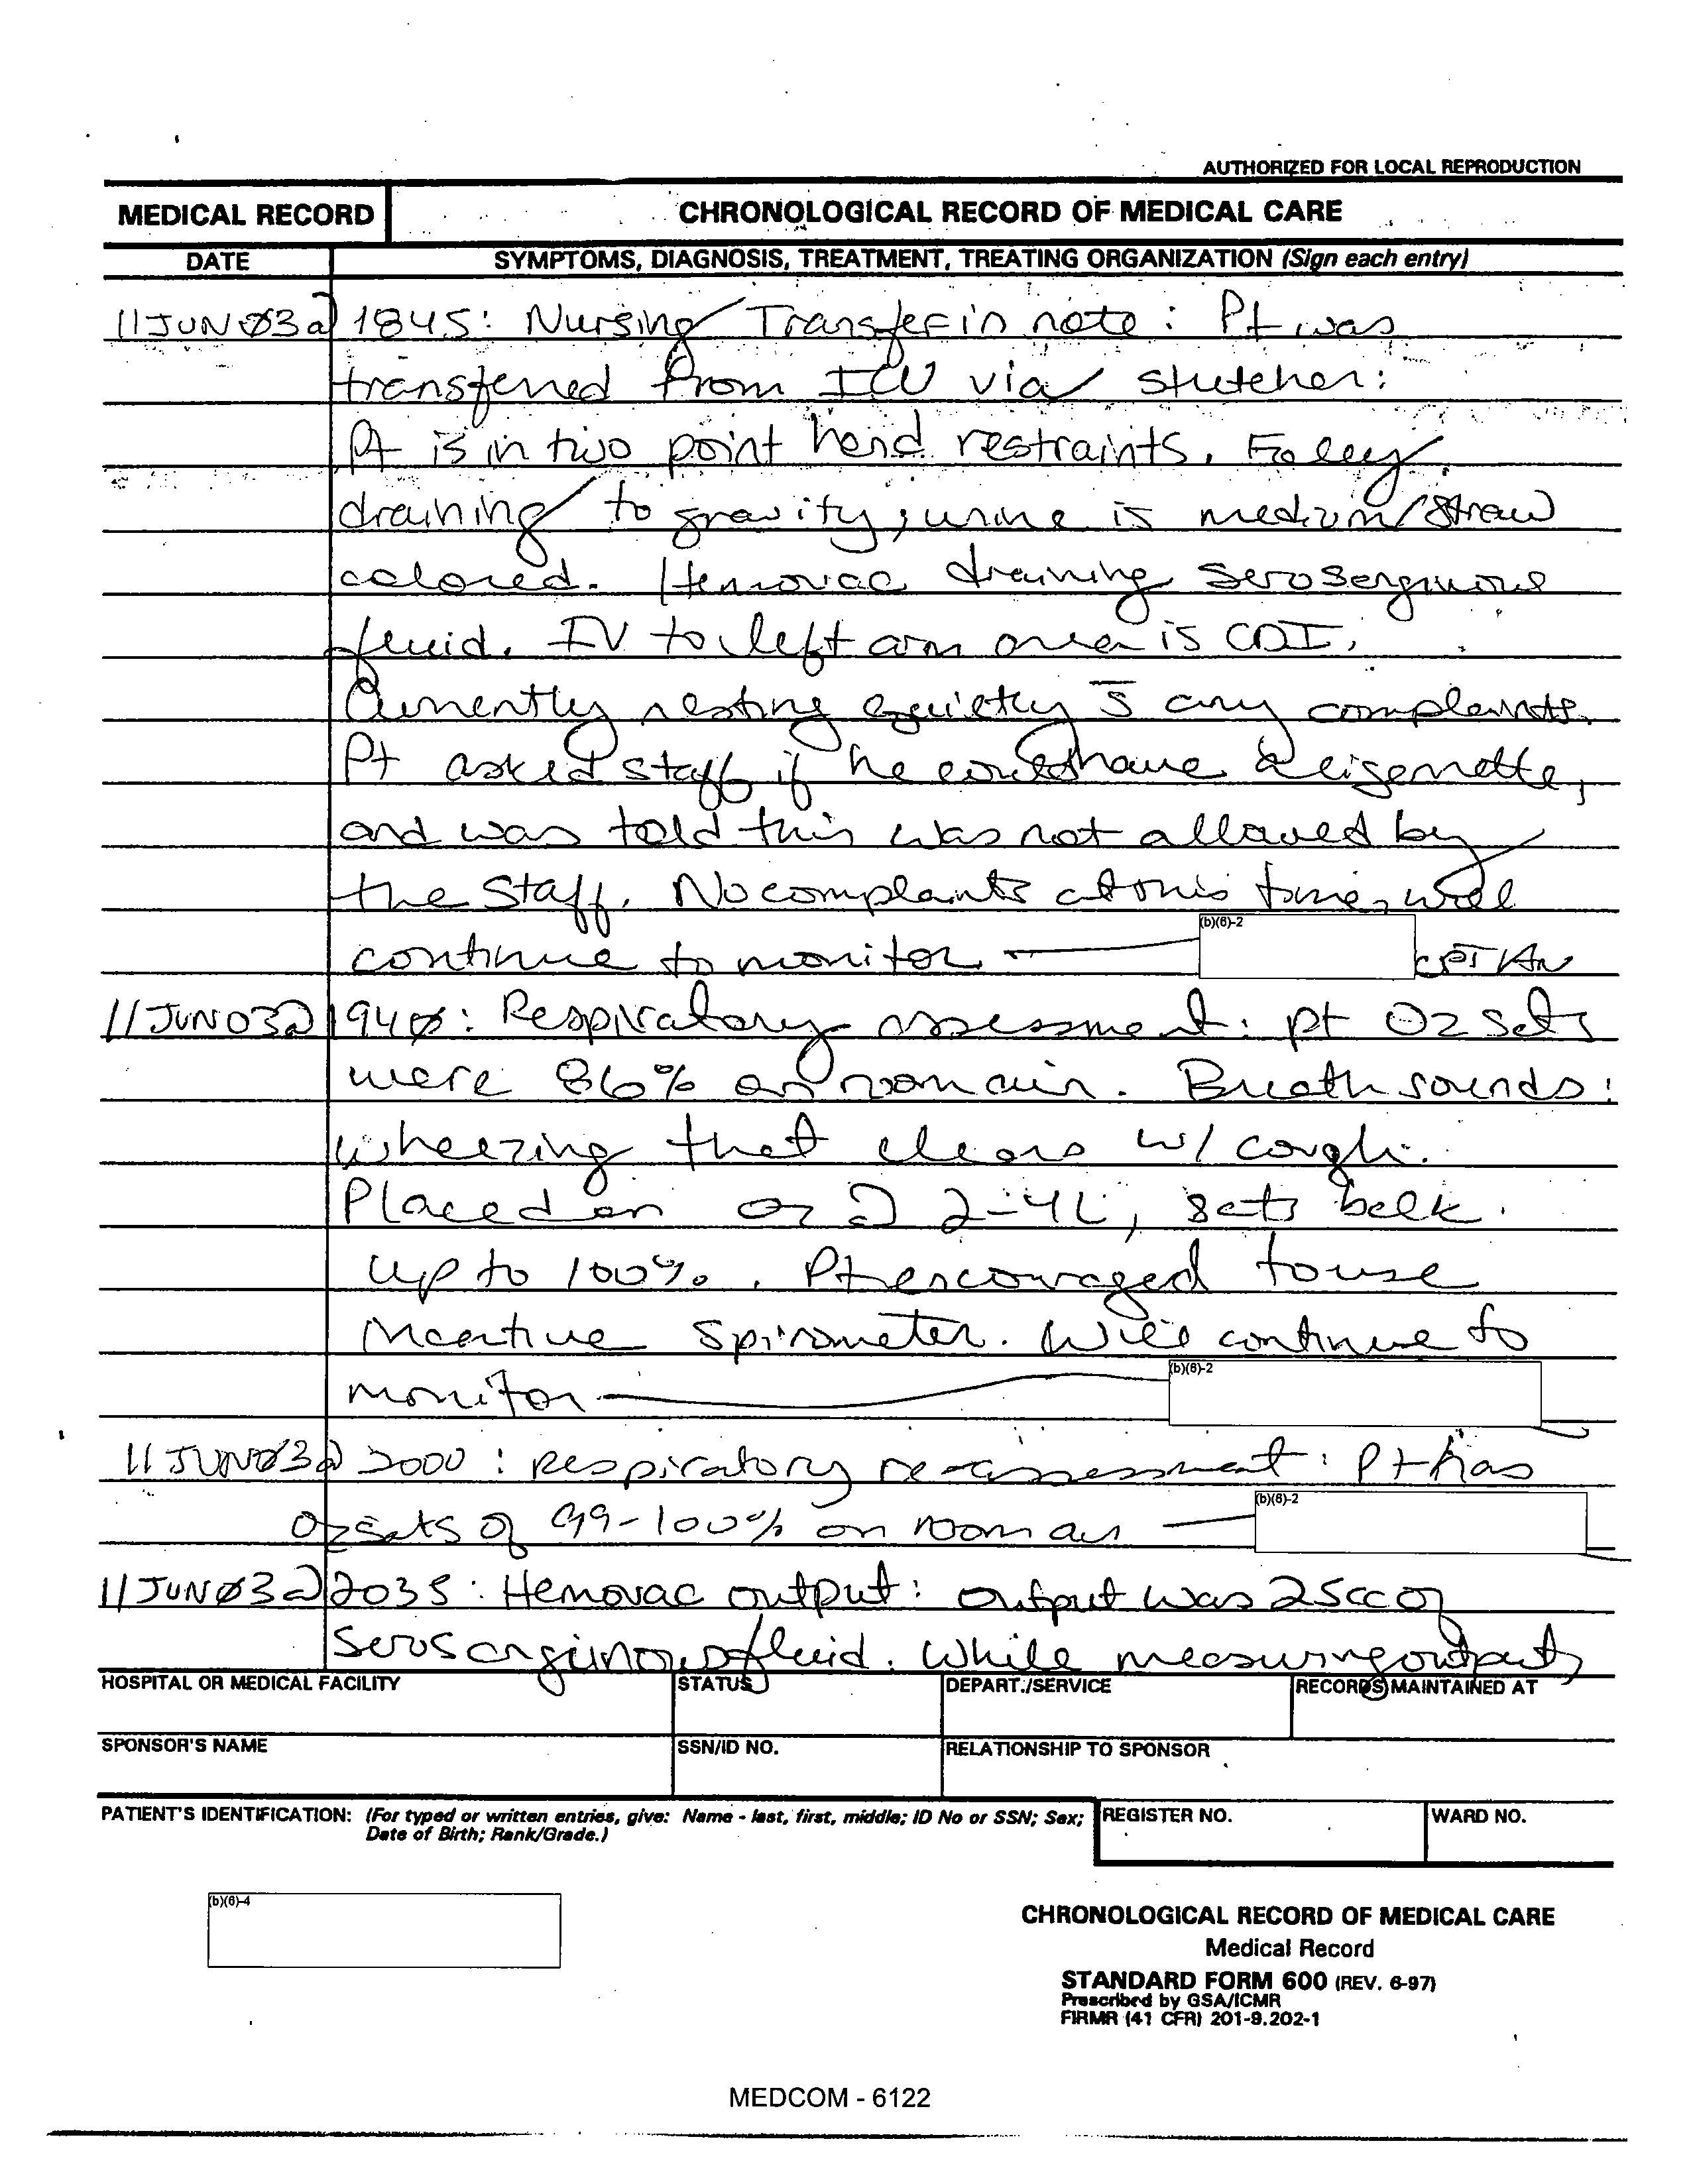 AUTHORIZED FOR LOCAL REPRODUCTION
MEDICAL RECORD CHRONOLOGICAL RECORD OF MEDICAL CARE
DATE SYMPTOMS, DIAGNOSIS, TREATMENT, TREATING ORGANIZATION (Sign each entry)
11 JUN Ø3 @ 1845: Nursing Transfer in note: Pt was
transferred from ICU via stretcher:
Pt is in two point hand restraints. Foley
draining to gravity; urine is medium/straw
colored. Hemovac draining serosanguinous
fluid. IV to left arm area is CDI.
Currently resting quietly s̄ any complaints.
Pt asked staff if he could have a cigarette,
and was told this was not allowed by
the staff. No complaints at this time, will
continue to monitor. (b)(6)-2 CPT AN
11 JUN 03 @ 194Ø: Respiratory assessment: pt O2 sats
were 86% on room air. Breath sounds:
wheezing that clears w/ cough.
Placed on O2 @ 2-4L, sats back
up to 100%. Pt encouraged to use
incentive spirometer. Will continue to
monitor (b)(6)-2
11 JUN Ø3 @ 2000: respiratory re-assessment: Pt has
O2 sats of 99-100% on room air (b)(6)-2
11 JUN Ø3 @ 2035: Hemovac output: output was 25cc of
serosanginous fluid. While measuring output,
HOSPITAL OR MEDICAL FACILITY STATUS DEPART./SERVICE RECORDS MAINTAINED AT
SPONSOR'S NAME SSN/ID NO. RELATIONSHIP TO SPONSOR
PATIENT'S IDENTIFICATION: (For typed or written entries, give: Name - last, first, middle; ID No or SSN; Sex; REGISTER NO. WARD NO.
Date of Birth; Rank/Grade.)
(b)(6)-4
CHRONOLOGICAL RECORD OF MEDICAL CARE
Medical Record
STANDARD FORM 600 (REV. 6-97)
Prescribed by GSA/ICMR
FIRMR (41 CFR) 201-9.202-1
MEDCOM - 6122